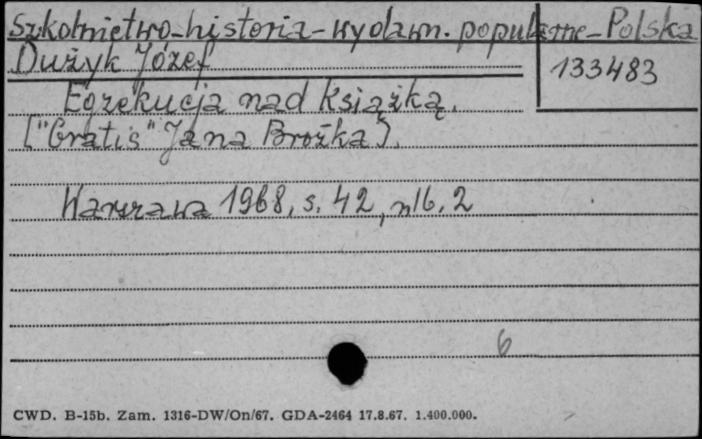 Szkolnictwo-historia-wydawn. popularne-Polska
Dużyk Józef
133483
Egzekucja nad książką.
["Gratis" Jana Brożka].
Warszawa 1968, s. 42, nlb. 2
6
CWD. B-15b. Zam. 1316-DW/On/67. GDA-2464 17.8.67. 1.400.000.